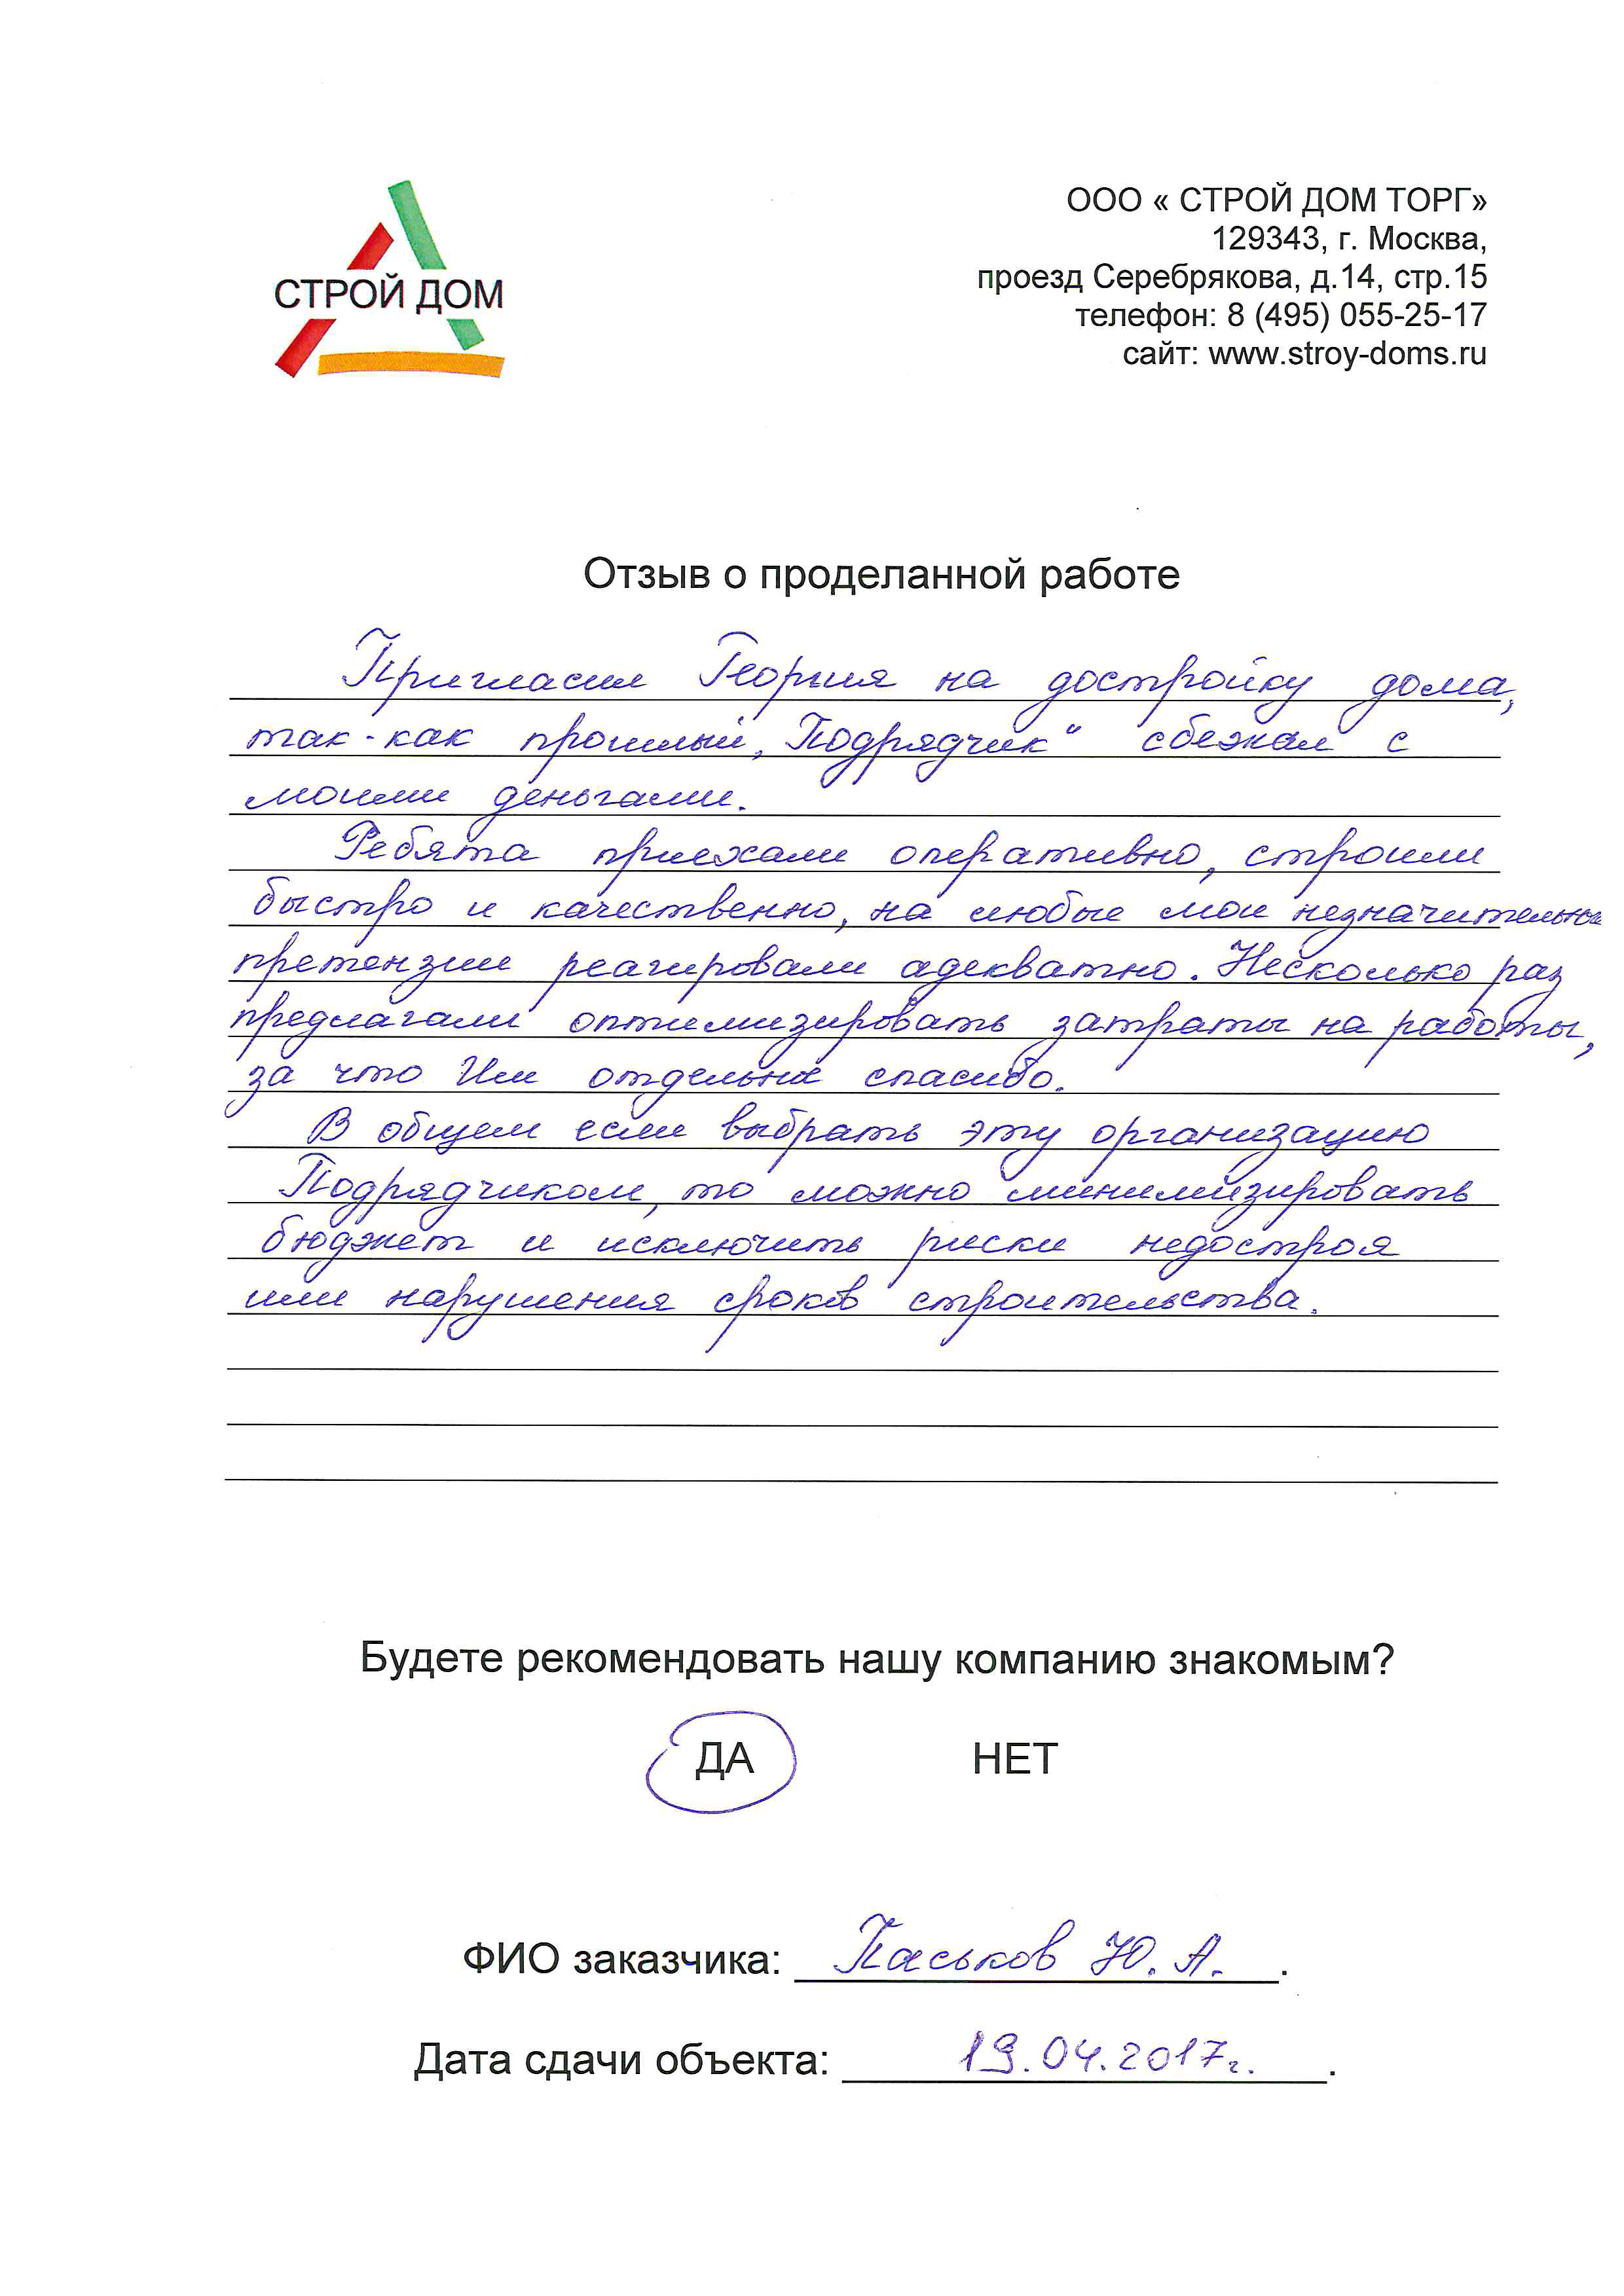 СТРОЙ ДОМ
ООО « СТРОЙ ДОМ ТОРГ»
129343, г. Москва,
проезд Серебрякова, д.14, стр.15
телефон: 8 (495) 055-25-17
сайт: www.stroy-doms.ru
Отзыв о проделанной работе
Пригласил Георгия на достройку дома,
так-как прошлый „Подрядчик“ сбежал с
моими деньгами.
Ребята приехали оперативно, строили
быстро и качественно, на любые мои незначительные
претензии реагировали адекватно. Несколько раз
предлагали оптимизировать затраты на работы,
за что Им отдельное спасибо.
В общем если выбрать эту организацию
Подрядчиком, то можно минимизировать
бюджет и исключить риски недостроя
или нарушения сроков строительства.
Будете рекомендовать нашу компанию знакомым?
ДА НЕТ
ФИО заказчика: Паськов Ю. А.
Дата сдачи объекта: 19.04.2017г.